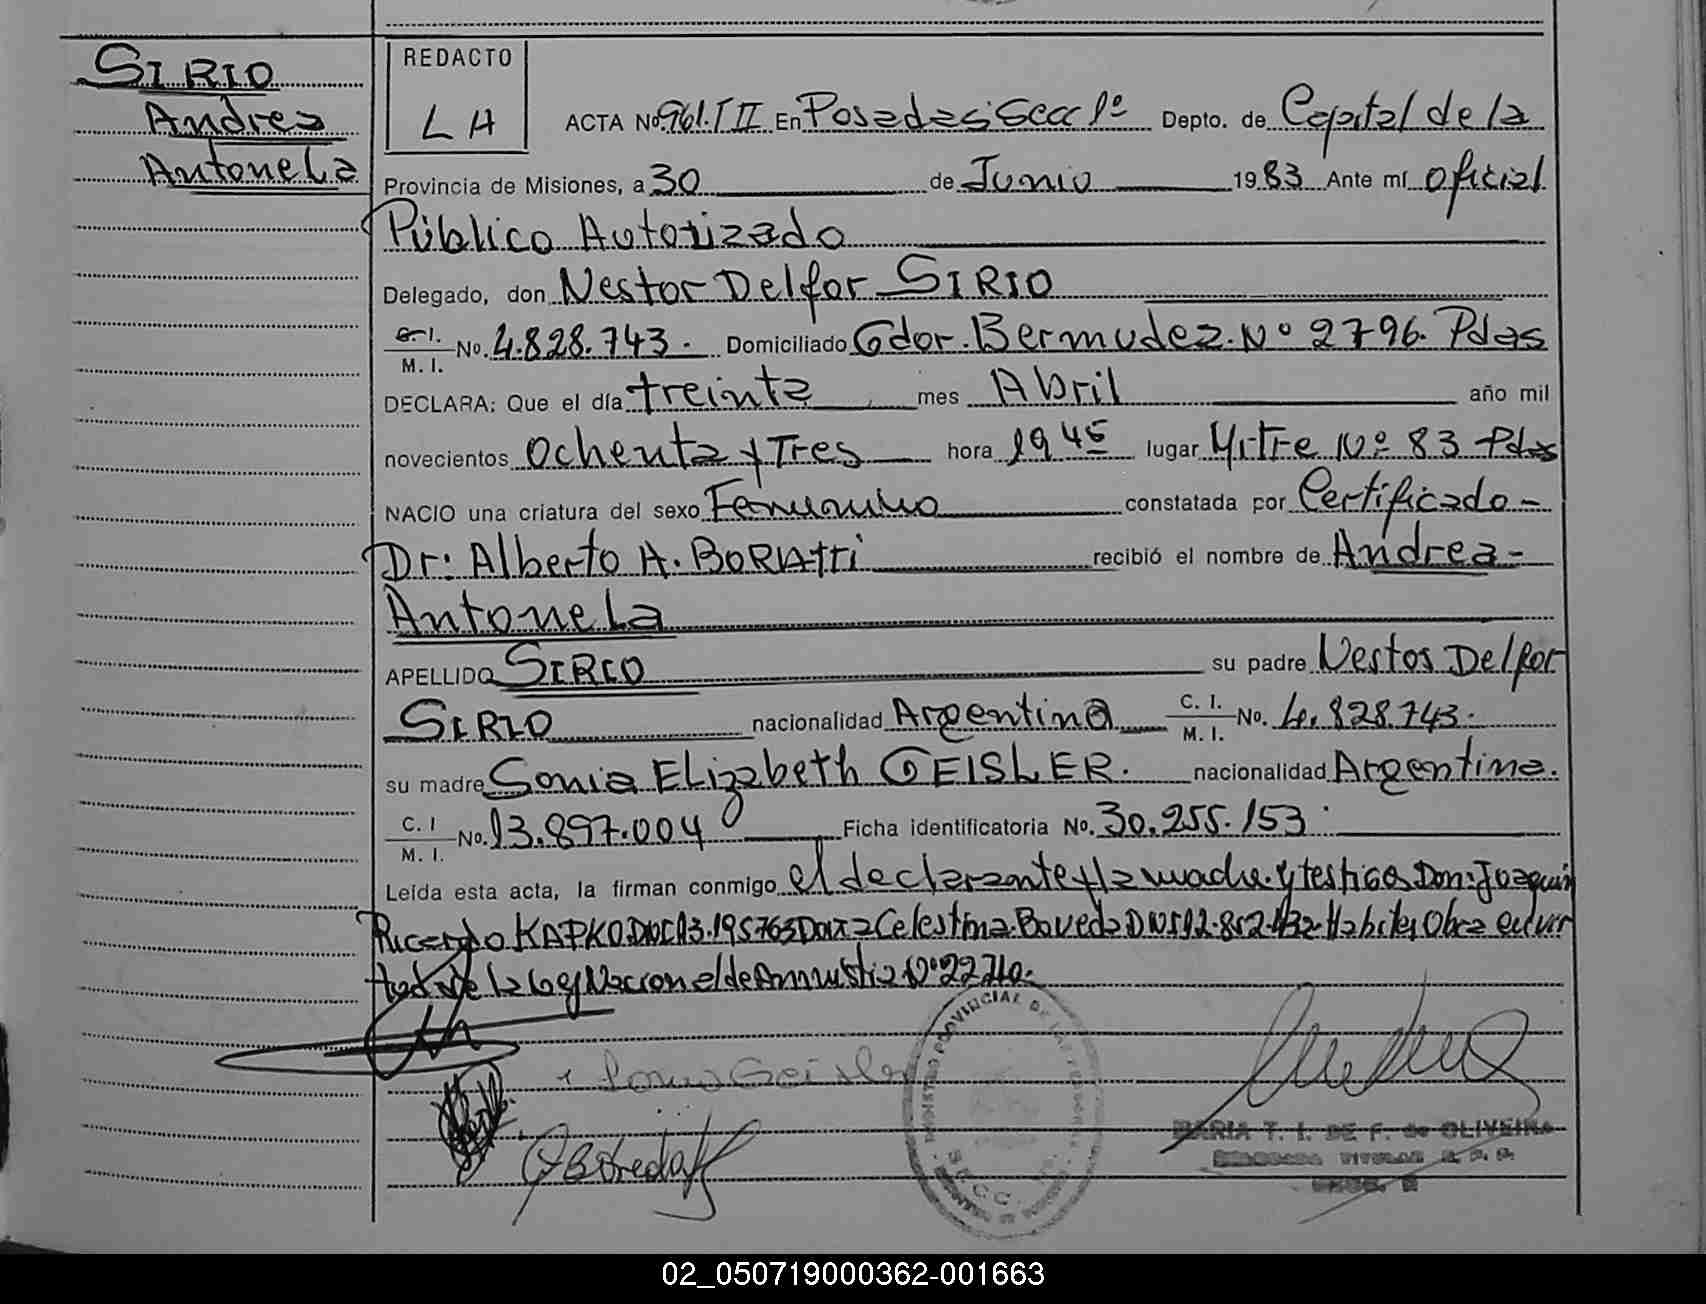 SIRIO
Andrea
Antonela
REDACTO
LH
ACTA No 961.T II En Posadas Secc 1º Depto. de Capital de la
Provincia de Misiones, a 30 de Junio 1983 Ante mí Oficial
Público Autorizado
Delegado, don Nestor Delfor SIRIO
C. I. M. I. No. 4.828.743. Domiciliado Gdor. Bermudez. Nº 2796. Pdas
DECLARA: Que el día treinta mes Abril año mil
novecientos Ochenta y Tres hora 19 45 lugar Mitre Nº 83 Pdas
NACIO una criatura del sexo Femenino constatada por Certificado-
Dr: Alberto A. BORIATTI recibió el nombre de Andrea-
Antonela
APELLIDO SIRIO su padre Nestor Delfor
SIRIO nacionalidad Argentina C. I. M. I. No. 4.828.743.
su madre Sonia ELizabeth GEISLER. nacionalidad Argentina.
C. I M. I. No. 13.897.004 Ficha identificatoria No. 30.255.153
Leída esta acta, la firman conmigo el declarante y la madre y testigos Don: Joaquin
Ricardo KAPKO Celestina Boveda Habiles Obra en vir
tud de la Ley Nacional de Amnistia Nº 22710.
Sonia Geisler
REGISTRO PROVINCIAL DE LAS PERSONAS
SECC.
MARIA T. I. DE F. de OLIVEIRA
02_050719000362-001663